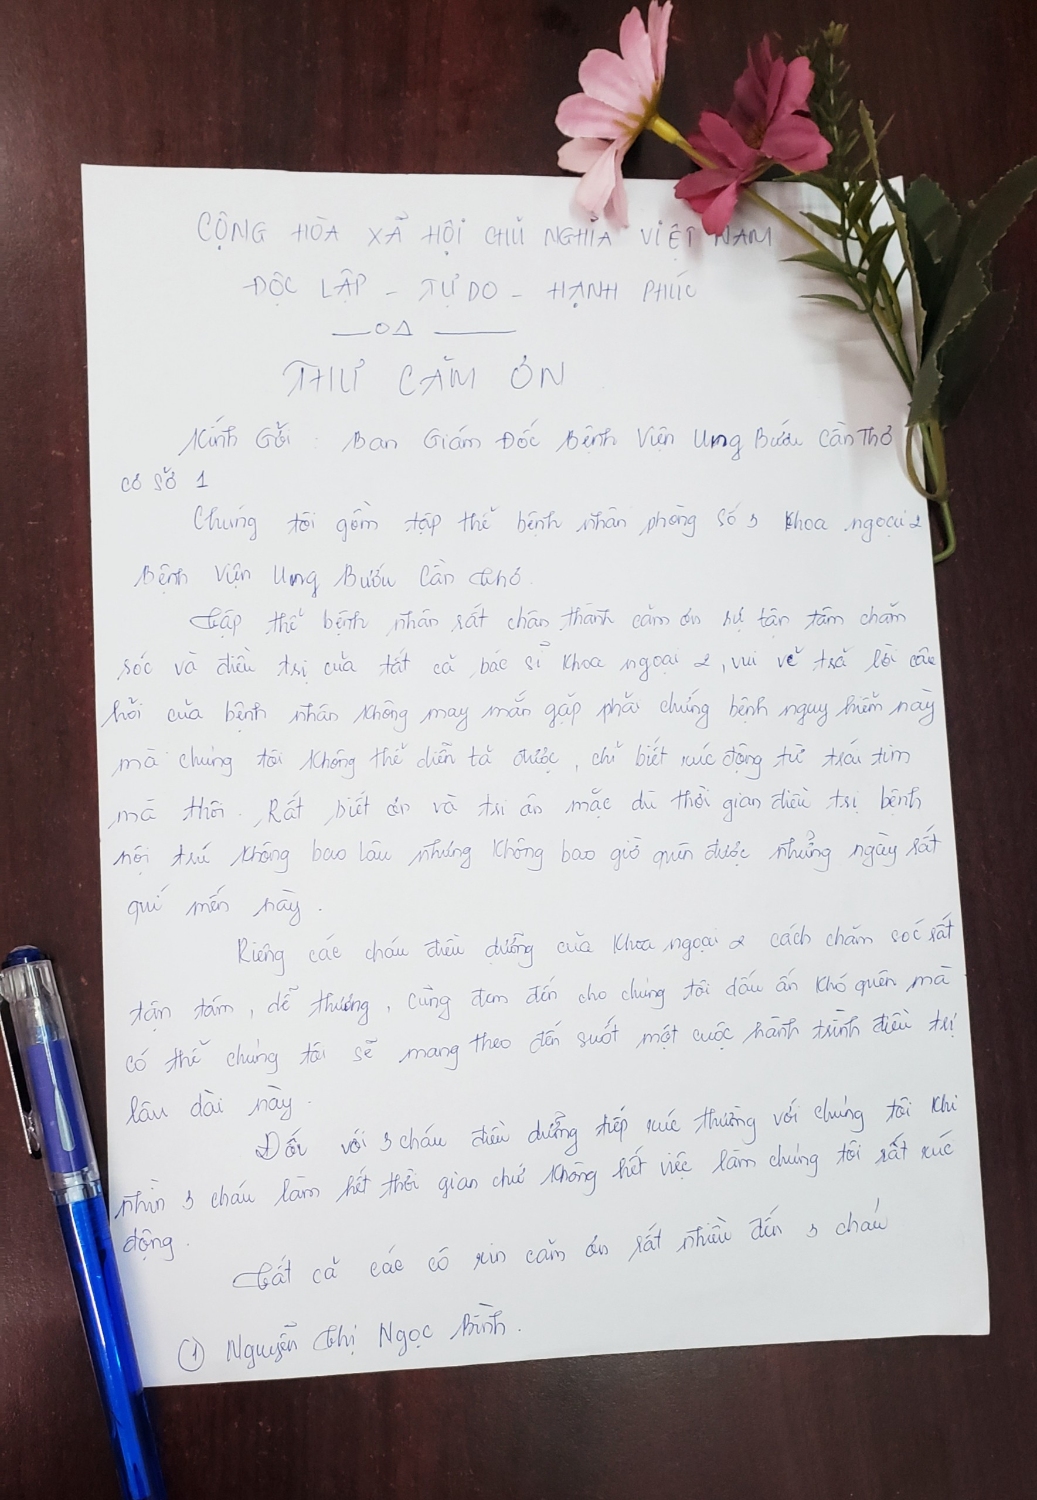 CỘNG HÒA XÃ HỘI CHỦ NGHĨA VIỆT NAM
ĐỘC LẬP - TỰ DO - HẠNH PHÚC
THƯ CẢM ƠN
Kính Gởi : Ban Giám Đốc Bệnh Viện Ung Bướu Cần Thơ
cơ sở 1
Chúng tôi gồm tập thể bệnh nhân phòng số 3 khoa ngoại 2
Bệnh Viện Ung Bướu Cần Thơ.
Tập thể bệnh nhân rất chân thành cảm ơn sự tận tâm chăm
sóc và điều trị của tất cả bác sĩ khoa ngoại 2, vui vẻ trả lời câu
hỏi của bệnh nhân không may mắn gặp phải chứng bệnh nguy hiểm này
mà chúng tôi không thể diễn tả được, chỉ biết xúc động từ trái tim
mà thôi. Rất biết ơn và tri ân mặc dù thời gian điều trị bệnh
nội trú không bao lâu nhưng không bao giờ quên được những ngày rất
quí mến này.
Riêng các cháu điều dưỡng của khoa ngoại 2 cách chăm sóc rất
tận tâm, dễ thương, cũng đem đến cho chúng tôi dấu ấn khó quên mà
có thể chúng tôi sẽ mang theo đến suốt một cuộc hành trình điều trị
lâu dài này.
Đối với 3 cháu điều dưỡng tiếp xúc thường với chúng tôi khi
nhìn 3 cháu làm hết thời gian chứ không hết việc làm chúng tôi rất xúc
động.
Tất cả các cô xin cảm ơn rất nhiều đến 3 cháu
① Nguyễn Thị Ngọc Bình.